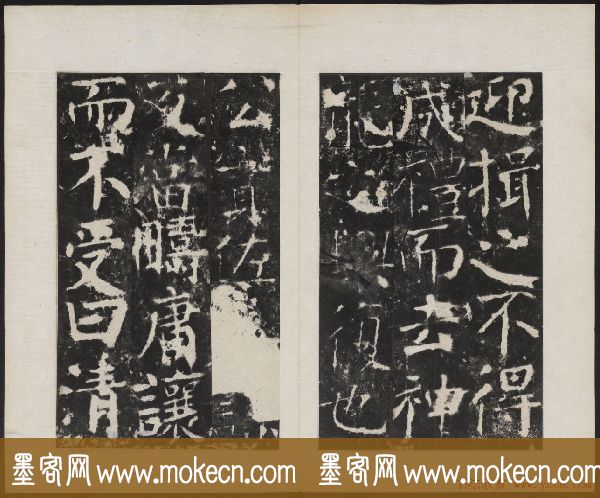 迎揖之不得
成禮而去神
復也
公實佐
又當疇庸讓
而不受曰清
墨客网 www.mokecn.com 墨客网 www.mokecn.com